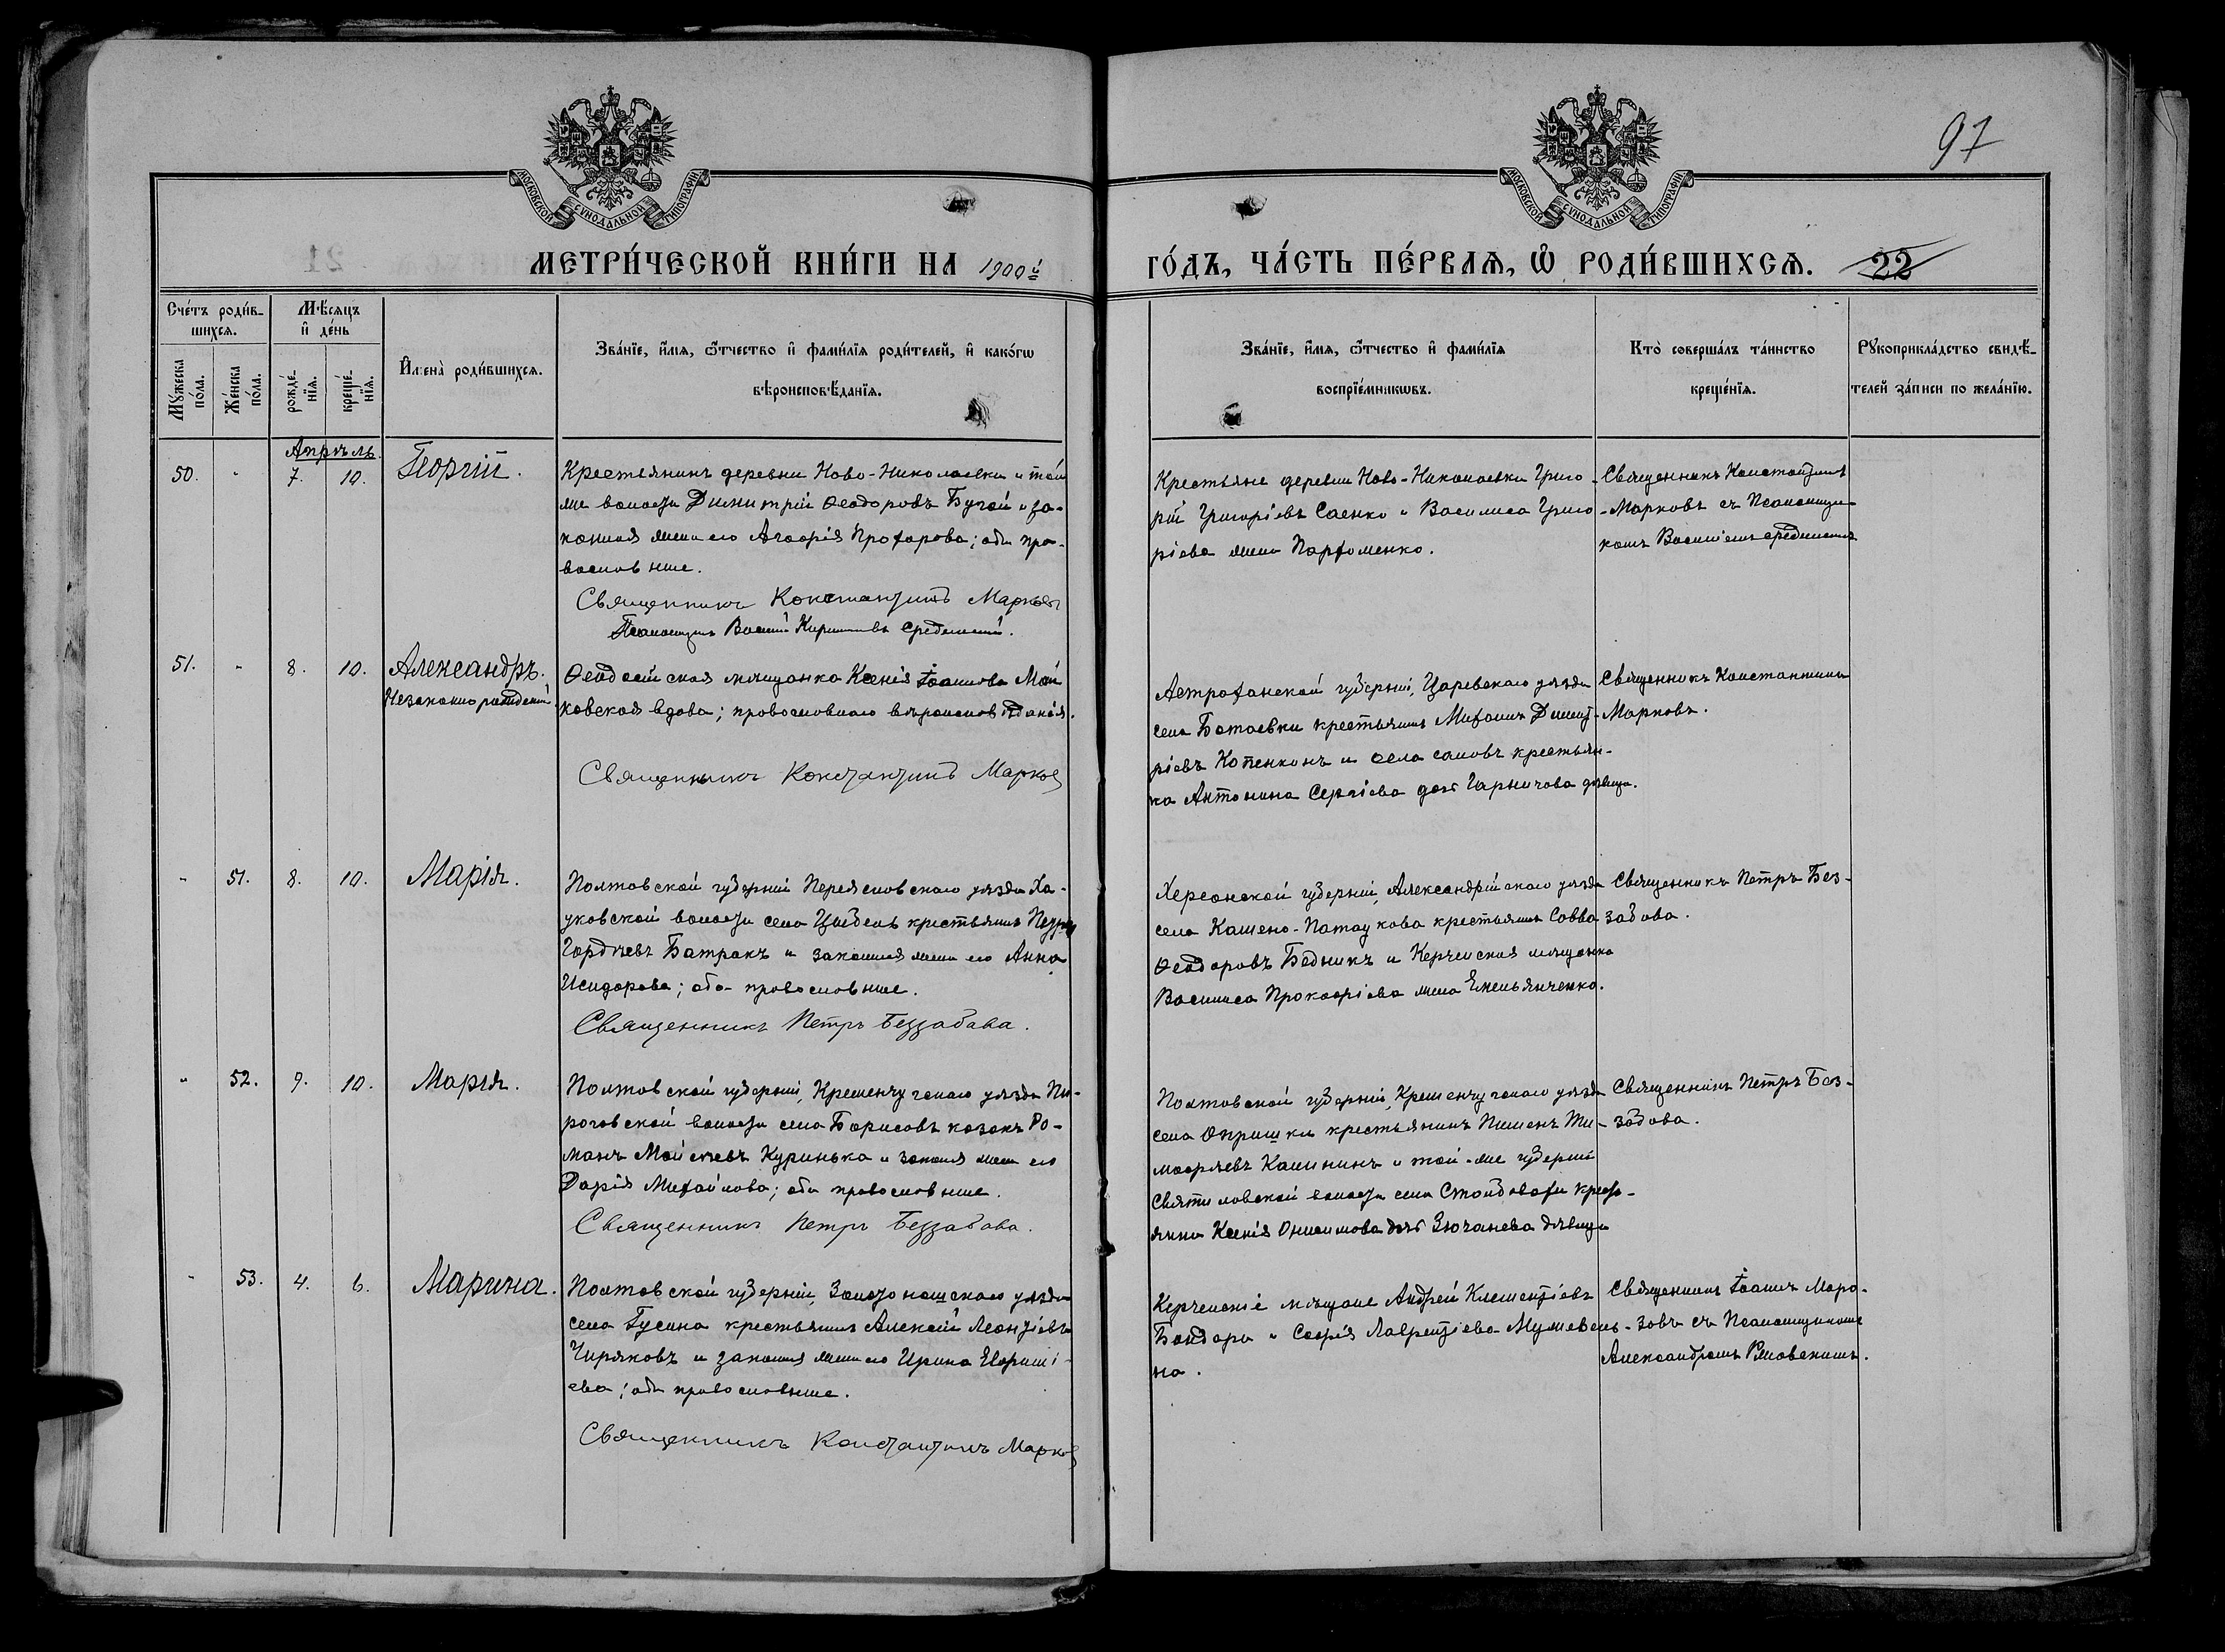 97
МОСКОВСКОЙ СУНОДАЛЬНОЙ ТИПОГРАФІИ
МОСКОВСКОЙ СУНОДАЛЬНОЙ ТИПОГРАФІИ
МЕТРИ́ЧЕСКОЙ КНИ́ГИ НА 1900й ГО́ДЪ, ЧА́СТЬ ПЕ́РВАѦ, Ѽ РОДИ́ВШИХСѦ. 22
Сче́тъ роди́в-
шихсѧ.
Мꙋ́жеска по́ла.
Же́нска по́ла.
Мѣ́сѧцъ и҆ де́нь
рожде́-нїѧ.
креще́-нїѧ.
И҆мена̀ роди́вшихсѧ.
Зва́нїе, и҆́мѧ, ѻ҆́тчество и҆ фами́лїѧ роди́телей, и҆ како́гѡ
вѣроисповѣ́данїѧ.
Зва́нїе, и҆́мѧ, ѻ҆́тчество и҆ фами́лїѧ
воспрїе́мникѡвъ.
Кто̀ соверша́лъ та́инство
креще́нїѧ.
Рꙋкоприкла́дство свидѣ́-
телей за́писи по жела́нїю.
Апрѣль
50. " 7. 10. Георгій.
Крестьянинъ деревни Ново-Николаевки и той
же волости Димитрій Ѳеодоровъ Бугай и за-
конная жена его Агафія Прохорова; оба пра-
вославные.
Священникъ Константинъ Марковъ
Псаломщикъ Василій
Крестьяне деревни Ново-Николаевки Григо-
рій Григоріевъ Саенко и Василиса Григо-
ріева жена Парфоменко.
Священникъ Константинъ
Марковъ съ Псаломщи-
комъ Василіемъ
51. " 8. 10. Александръ.
Незаконнорожденный.
Ѳеодосійская мѣщанка Ксенія Іоаннова Май
ковская вдова; православнаго вѣроисповѣданія.
Священникъ Константинъ Марковъ
Астраханской губерніи, Царевскаго уѣзда
села Батаевки крестьянинъ Михаилъ Димит-
ріевъ Копенкинъ и села крестьян-
ка Антонина Сергіева дочь дѣвица.
Священникъ Константинъ
Марковъ.
" 51. 8. 10. Марія.
Полтавской губерніи Переяславскаго уѣзда
волости села крестьянинъ Петръ
Гордѣевъ Батракъ и законная жена его Анна
Исидорова; оба православные.
Священникъ Петръ Беззабава.
Херсонской губерніи, Александрійскаго уѣзда
села крестьянинъ Савва
Ѳеодоровъ Бедникъ и Керченская мѣщанка
Василиса Прокофіева жена Емельянченко.
Священникъ Петръ Без-
забава.
" 52. 9. 10. Марія.
Полтавской губерніи, Кременчугскаго уѣзда Пи-
роговской волости села Борисовъ казакъ Ро-
манъ Моисеевъ Куринька и законная жена его
Дарія Михайлова; оба православные.
Священникъ Петръ Беззабава.
Полтавской губерніи, Кременчугскаго уѣзда
села Опришки крестьянинъ Пименъ Ти-
мофѣевъ Калининъ и той-же губерніи
волости села крестья-
янка Ксенія Онисимова дочь дѣвица
Священникъ Петръ Без-
забава.
" 53. 4. 6. Марина.
Полтавской губерніи, Золотоношскаго уѣзда
села Гусина крестьянинъ Алексій Леонтіевъ
Чиряковъ и законная жена его Ирина
ева; оба православные.
Священникъ Константинъ Марковъ
Керченскіе мѣщане Андрей Климентіевъ
Бондарь и Софія Лаврентіева
на.
Священникъ Іоаннъ Маро-
зовъ съ Псаломщикомъ
Александромъ